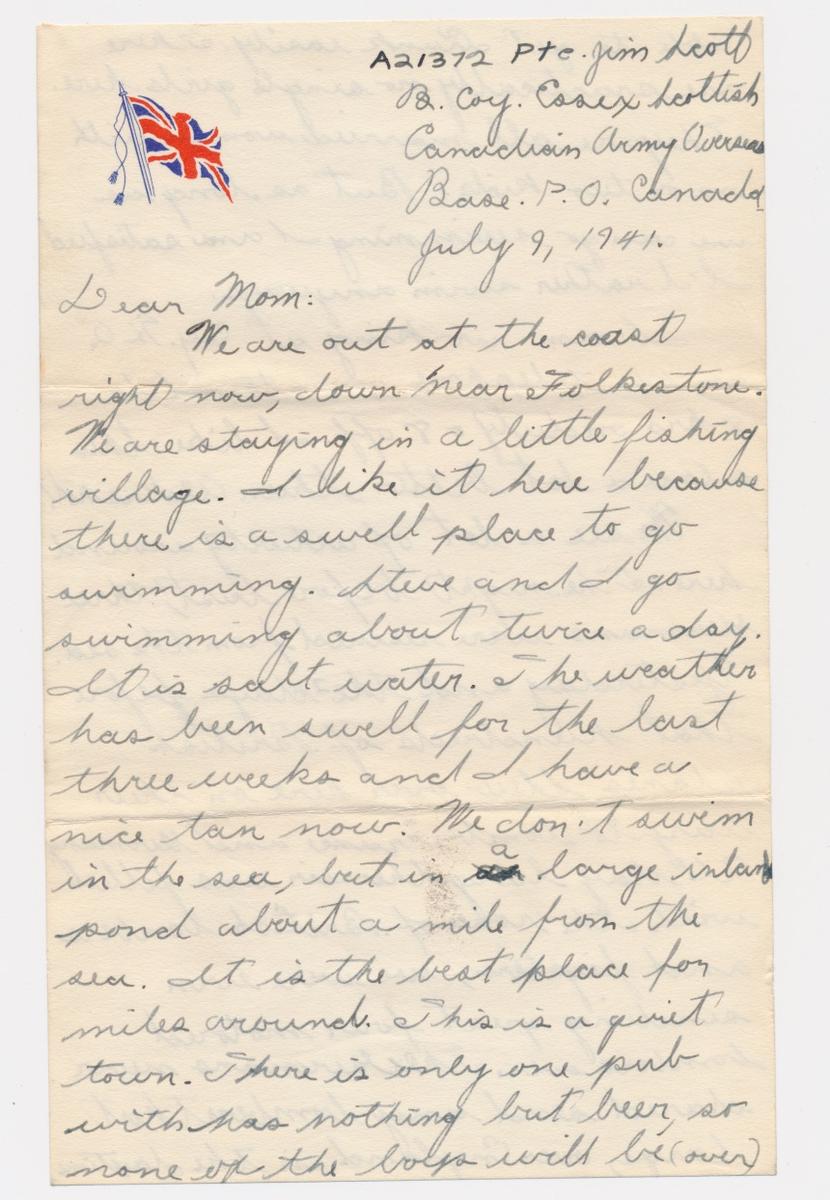 A21372 Pte. Jim Scott
B. Coy. Essex Scottish
Canadian Army Overseas
Base. P.O. Canada
July 9, 1941.
Dear Mom:
We are out at the coast
right now, down near Folkestone.
We are staying in a little fishing
village. I like it here because
there is a swell place to go
swimming. Steve and I go
swimming about twice a day.
It is salt water. The weather
has been swell for the last
three weeks and I have a
nice tan now. We don't swim
in the sea, but in a large inland
pond about a mile from the
sea. It is the best place for
miles around. This is a quiet
town. There is only one pub
with has nothing but beer, so
none of the boys will be (over)